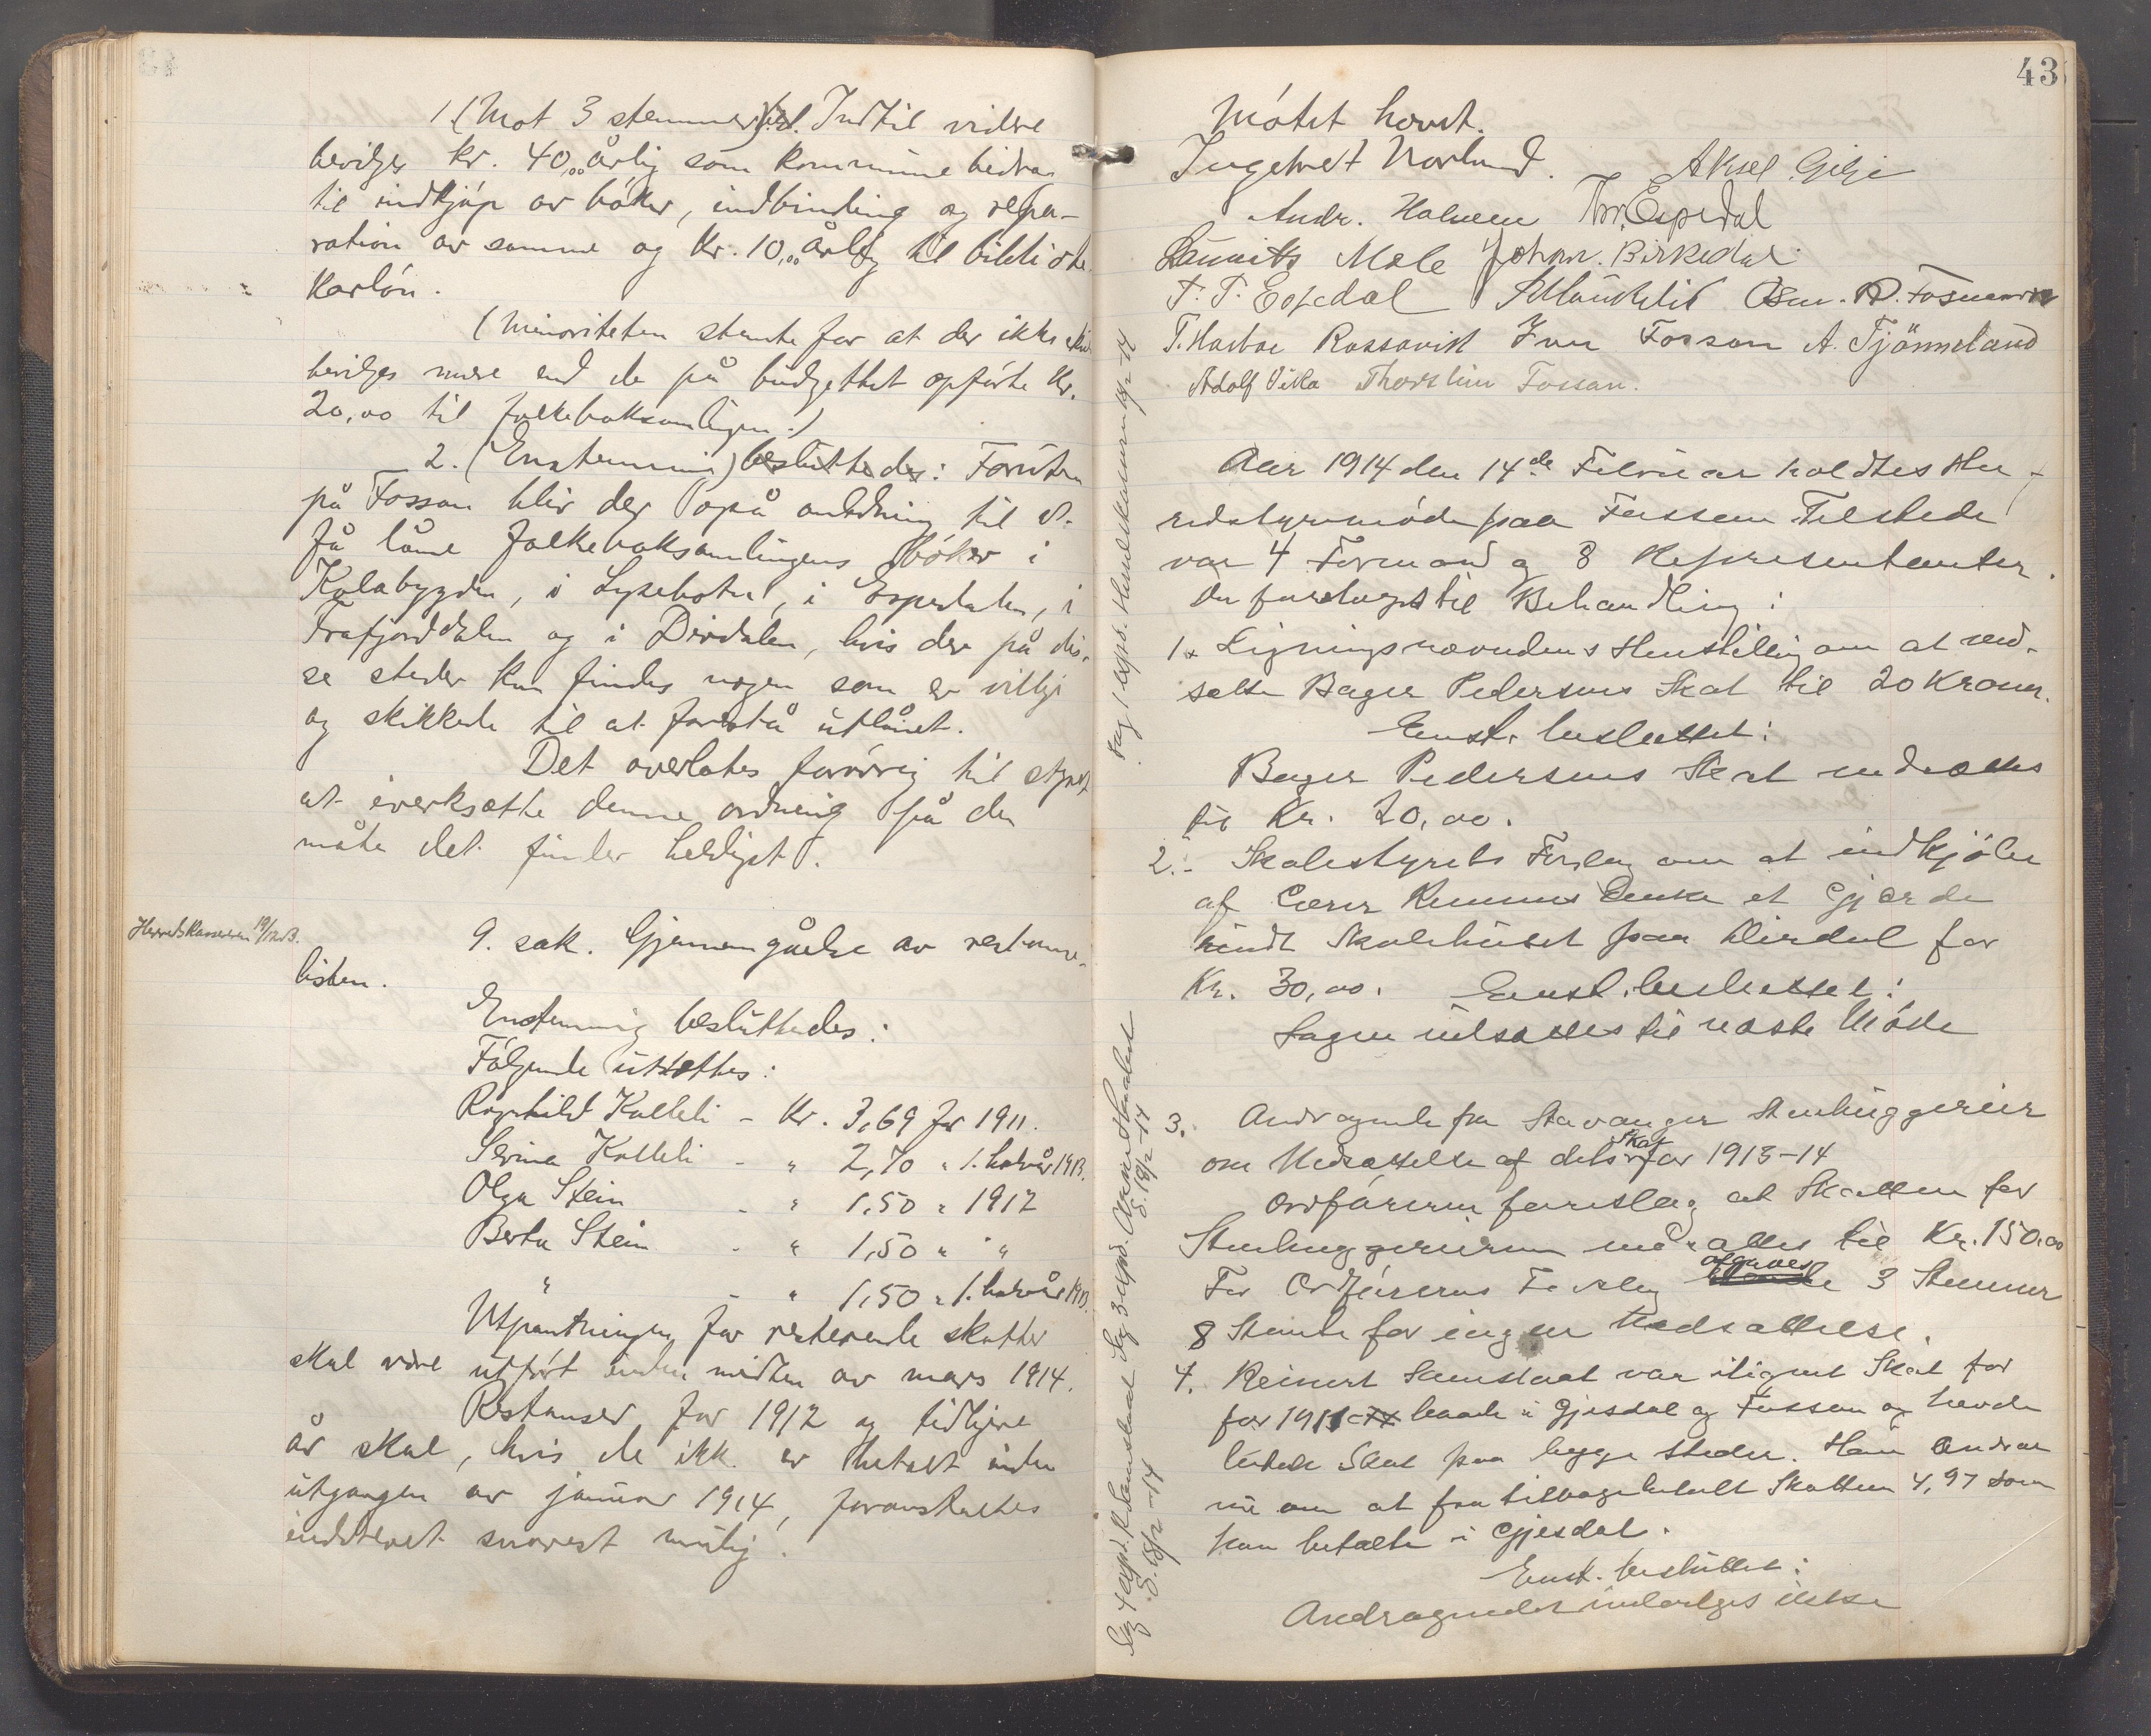 1. (Mot 3 stemmer) besl. Indtil videre
bevilges kr. 40,00 årlig som kommune bidrag
til indkjøp av bøker, indbinding og repa-
ration av samme og kr. 10,00 årlig til bibliote-
karløn.
(Minoriteten stemte for at der ikke
bevilges mere end de på budgettet opførte kr.
20,00 til folkeboksamlingen.)
2. (Enstemmig) besluttedes: Foruten
på Fossan blir der også anledning til at
få låne folkeboksamlingens bøker i
Kolabygden, i Lysebotn, i Espedalen, i
Frafjorddalen og i Dirdalen, hvis der på dis-
se steder kan findes nogen som er villige
og skikkede til at forestå utlånet.
Det overlates forøvrig til styret
at iverksætte denne ordning på den
måte det finder heldigst.
Herredskassereren 19/12 13.
9. sak. Gjennemgåelse av restanse-
listen.
Enstemmig besluttedes:
Følgende utsættes:
Ragnhild Kalleli - Kr. 3,69 for 1911.
Serina Kalleli - " 2,70 " 1. halvår 1913.
Olga Stein - " 1,50 " 1912
Berta Stein - " 1,50 " "
" - " 1,50 " 1. halvår 1913.
Utpantningen for resterende skatter
skal være utført inden midten av mars 1914.
Restanser for 1912 og tidligere
år skal, hvis de ikk. er betalt inden
utgangen av januar 1914, foranstaltes
inddrevet snarest mulig.
43
Møtet hævet.
Ingebret Norlund. Aksel Gilje
Andr. Halvem Thr. Espedal
Laurits Mæle Johan. Birkedal
T. T. Espedal Asm. R. Fosmark
T. Hasboe Rossavik Iver Fossan A. Tjønneland
Adolf Vika Thorstein Fossan.
Aar 1914 den 14de Februar holdtes Her-
redstyremøde paa Fossan Tilstede
var 4 Formænd og 8 Representanter.
Der foretoges til Behandling:
1. Ligningsnævndens Henstilling om at ned-
sætte Bager Pedersens Skat til 20 Kroner.
Enst. besluttet:
Bager Pedersens Skat nedsættes
til Kr. 20,00.
2.- Skolestyrets Forslag om at indkjøbe
af Lærer Enke et Gjærde
rundt Skolehuset paa Dirdal for
Kr. 30,00. Enst. besluttet:
Sagen udsættes til næste Møde
3. Andragende fra Stavanger Stenhuggerier
om Nedsættelse af dets Skat for 1913-14
Ordføreren foreslog at Skatten for
Stenhuggerierne nedsættes til Kr. 150,00
For Ordførerens Forslag afgaves 3 Stemmer
8 Stemte for ingen Nedsættelse.
4. Reinert Samstaat var ilignet Skat for
for 1911 baade i Gjesdal og Fossan og havde
betalt Skat paa begge Steder. Han andrar
nu om at faa tilbagebetalt Skatten 4,97 som
han betalte i Gjesdal.
Enst. besluttet:
Andragendet indvilges ikke
Sag 1 exped. Herredskasseren 18/2-14
Sag 3 exped. S. 18/2-14
Sag 4 exped. R. Samstaat S. 18/2-14